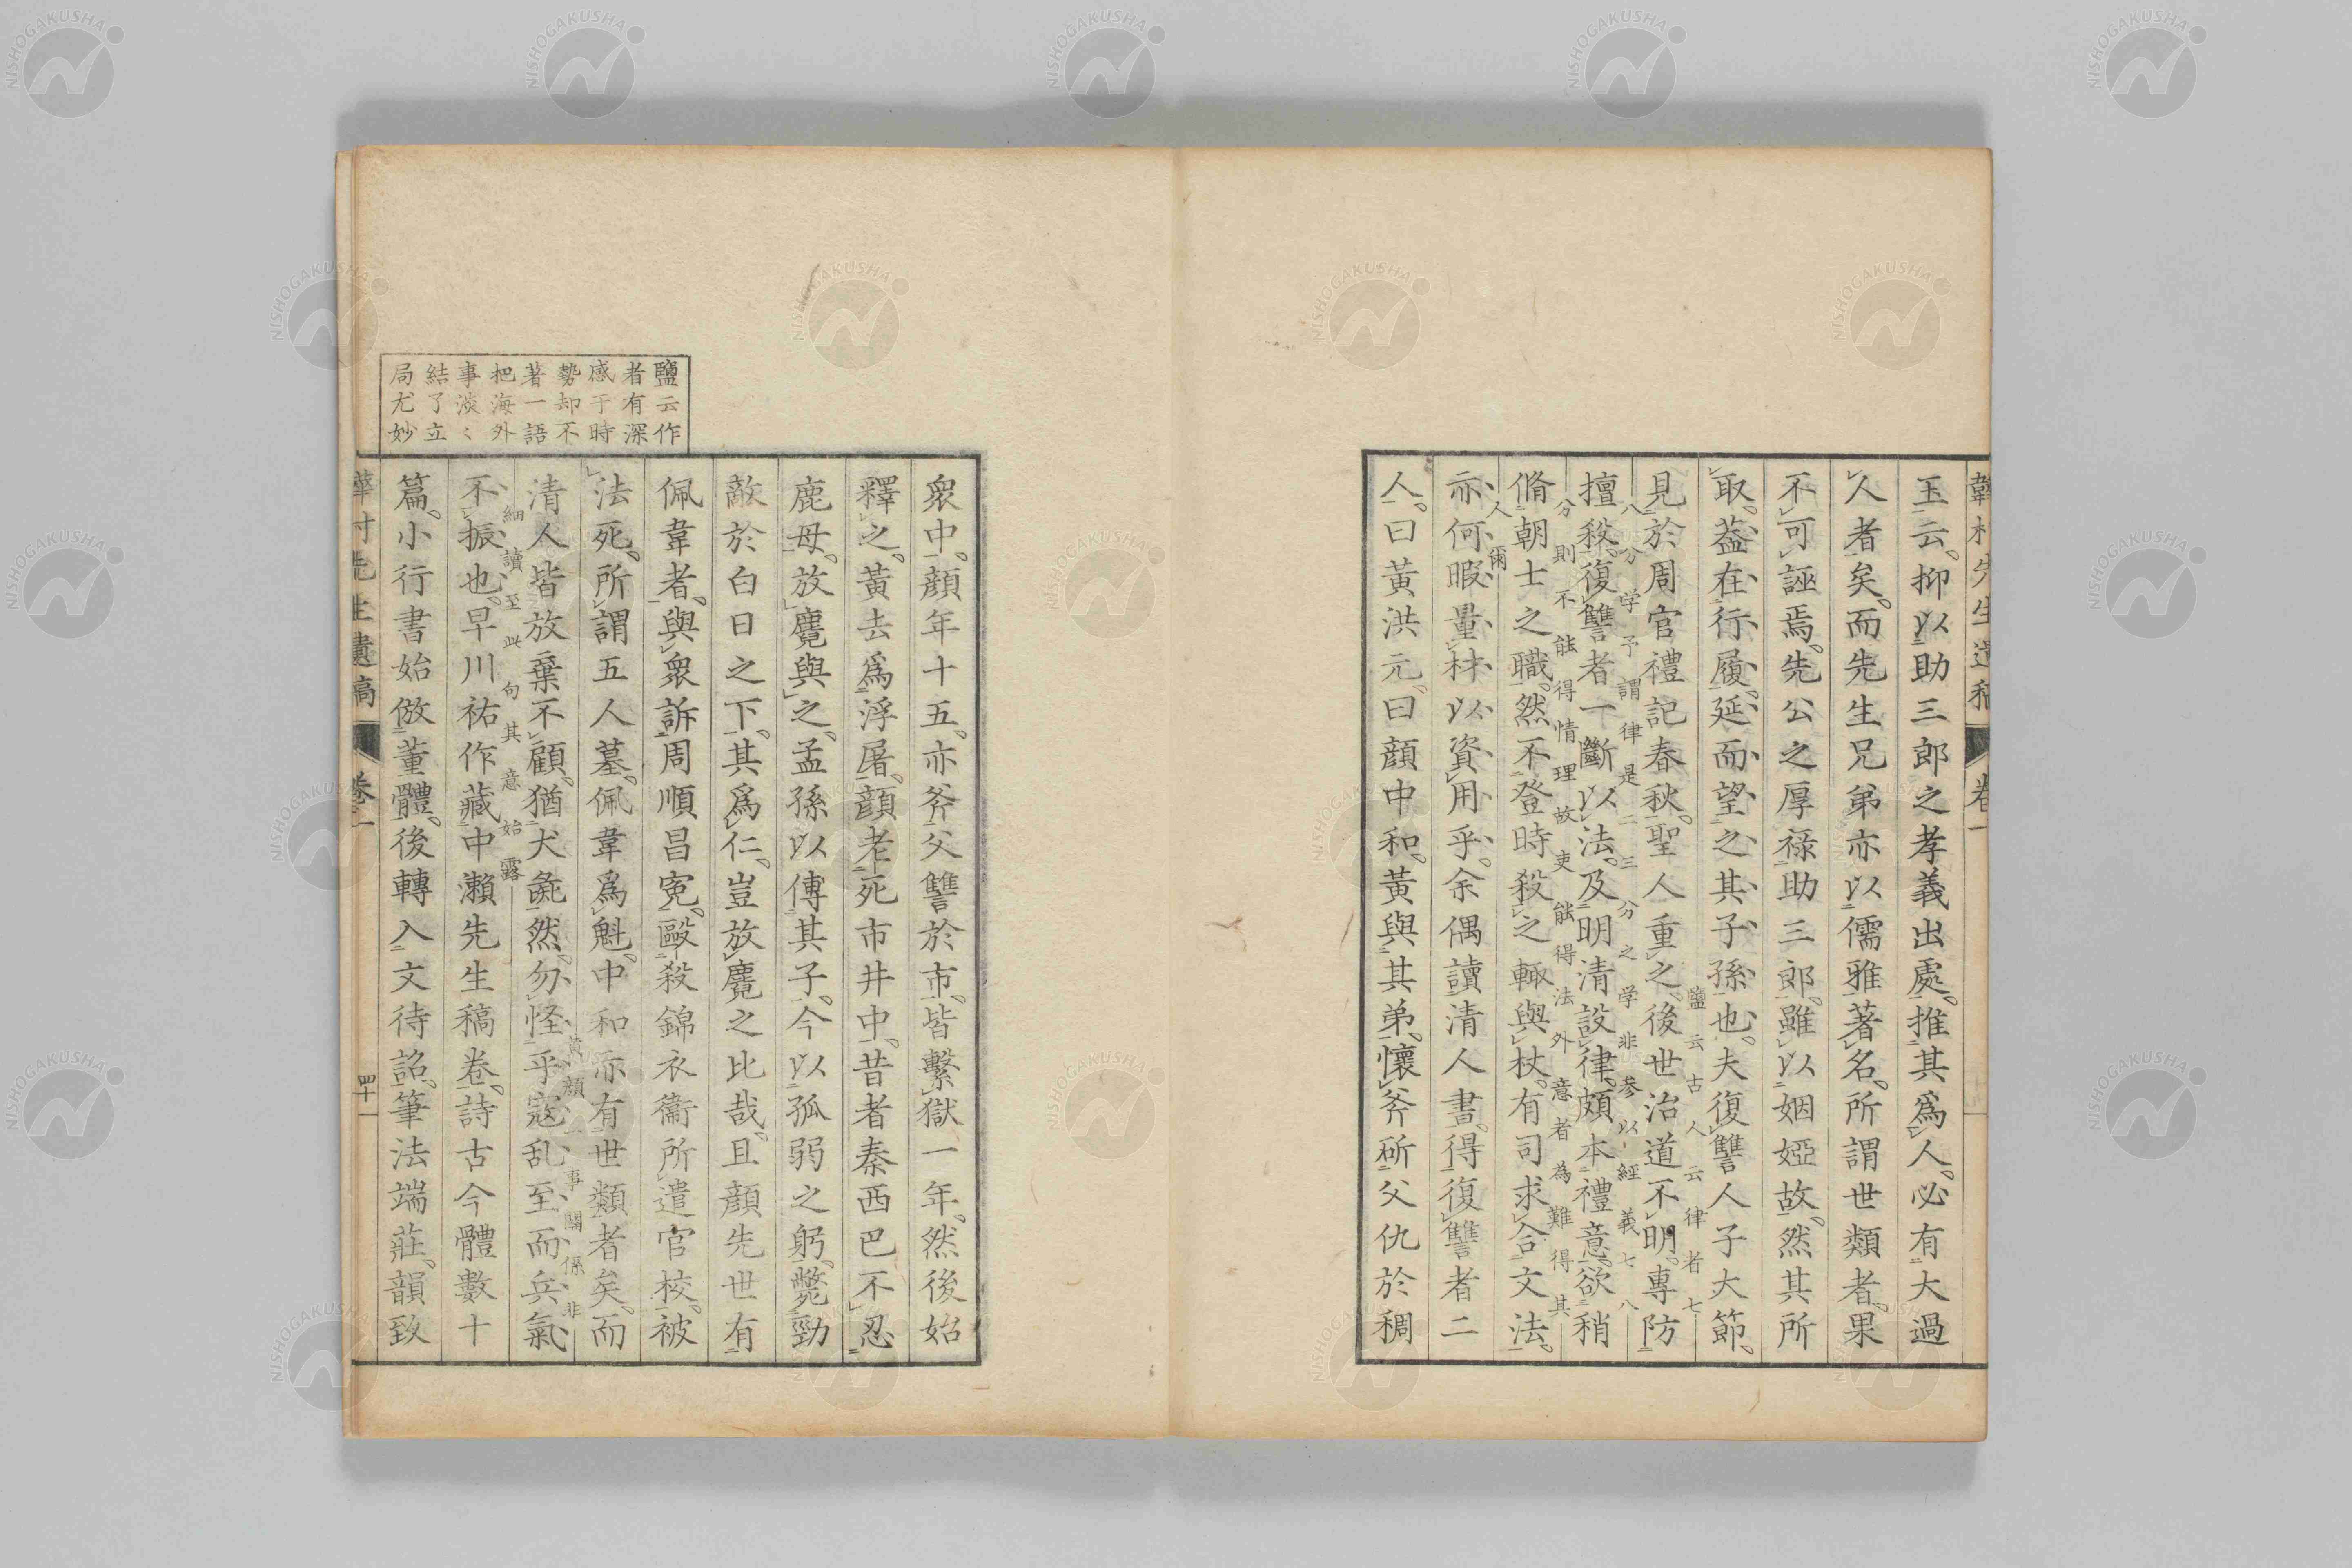 韡村先生遺稿　卷一
玉云。抑以助三郎之孝義出處。推其爲人。必有大過
人者矣。而先生兄弟亦以儒雅著名。所謂世類者。果
不可誣焉。先公之厚祿。助三郎雖以姻婭故。然其所
取。葢在行履。延而望之其子孫也。夫復讐人子大節。
鹽云古人云律者七
見於周官禮記春秋。聖人重之。後世治道不明。專防
八分学予謂律是二三分之学非参以經義七八
擅殺。復讐者一斷以法。及明清設律。頗本禮意。欲稍
分則不能得情理故吏能得法外意者為難得其
脩朝士之職。然不登時殺之。輙與杖。有司求合文法。
人爾
亦何暇量材以資用乎。余偶讀清人書。得復讐者二
人。曰黃洪元。曰顔中和。黃與其弟。懷斧斫父仇於稠
衆中。顔年十五。亦斧父讐於市。皆繫獄一年。然後始
釋之。黃去爲浮屠。顔老死市井中。昔者秦西巴不忍
鹿母。放麑與之。孟孫以傅其子。今以孤弱之躬。斃勁
敵於白日之下。其爲仁。豈放麑之比哉。且顔先世有
佩韋者。與衆訴周順昌寃。毆殺錦衣衞所遣官校。被
法死。所謂五人墓。佩韋爲魁。中和亦有世類者矣。而
黄顔一事關係非
清人皆放棄不顧。猶犬彘然。勿怪乎寇乱至而兵氣
細讀至此句其意始露
不振也。早川祐作藏中瀨先生稿卷。詩古今體數十
篇。小行書始倣董體。後轉入文待詔。筆法端莊。韻致
鹽云作
者有深
感于時
勢却不
著一語
把海外
事淡〻
結了立
局尤妙
韡村先生遺稿　卷一　四十一
NISHOGAKUSHA